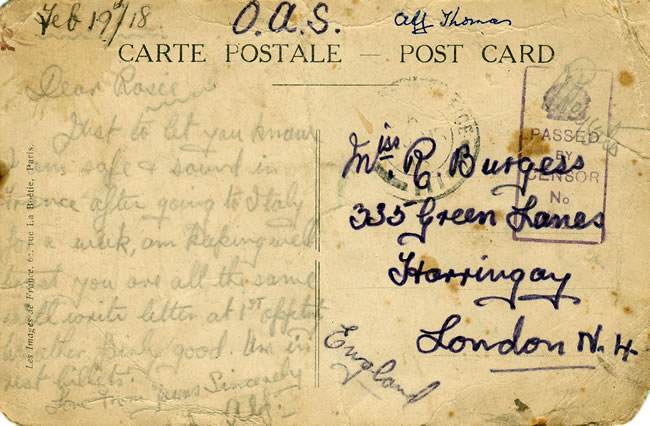 Feb 19th/18.
O.A.S.
Alf Thomas
CARTE POSTALE — POST CARD
Dear Rosie
Just to let you know
I am safe & sound in
France after going to Italy
for a week, am keeping well
trust you are all the same
will write letter at 1st
Weather fairly good. Am in
rest billets.
Love from yours Sincerely
Alf.
Les Images de France, rue La Boëtie, Paris.
PASSED
BY
CENSOR
No
Miss R. Burgess
335 Green Lanes
Harringay
London N.4.
England